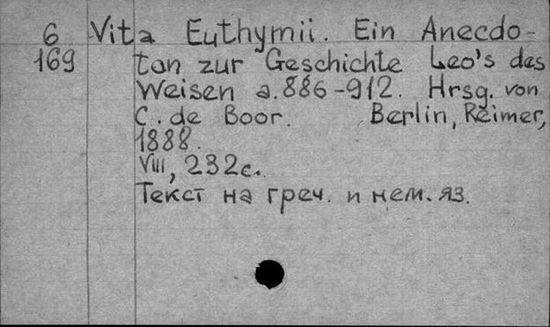 6 Vita Euthymii. Ein Anecdo-
169 ton zur Geschichte Leo's des
Weisen a. 886-912. Hrsg. von
C. de Boor. Berlin, Reimer,
1888.
VIII, 232c.
Текст на греч. и нем. яз.